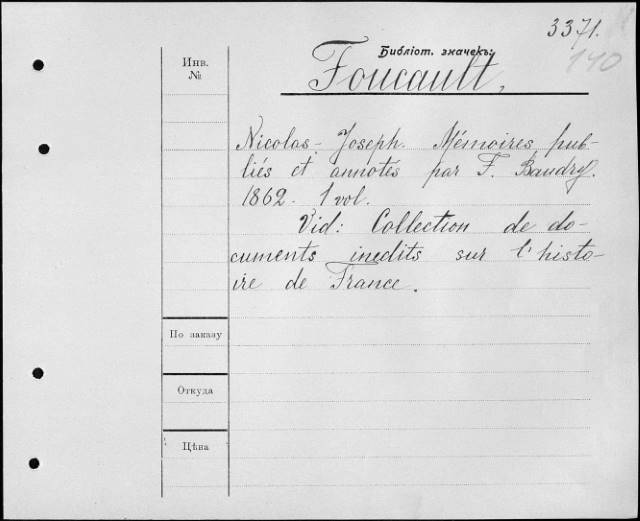 3371.
140
Библіот. значекъ:
Foucault,
Инв.
№
Nicolas-Joseph. Mémoires, pub-
liés et annotés par F. Baudry.
1862. 1 vol.
Vid: Collection de do-
cuments inedits sur l'histo-
ire de France.
По заказу
Откуда
Цѣна